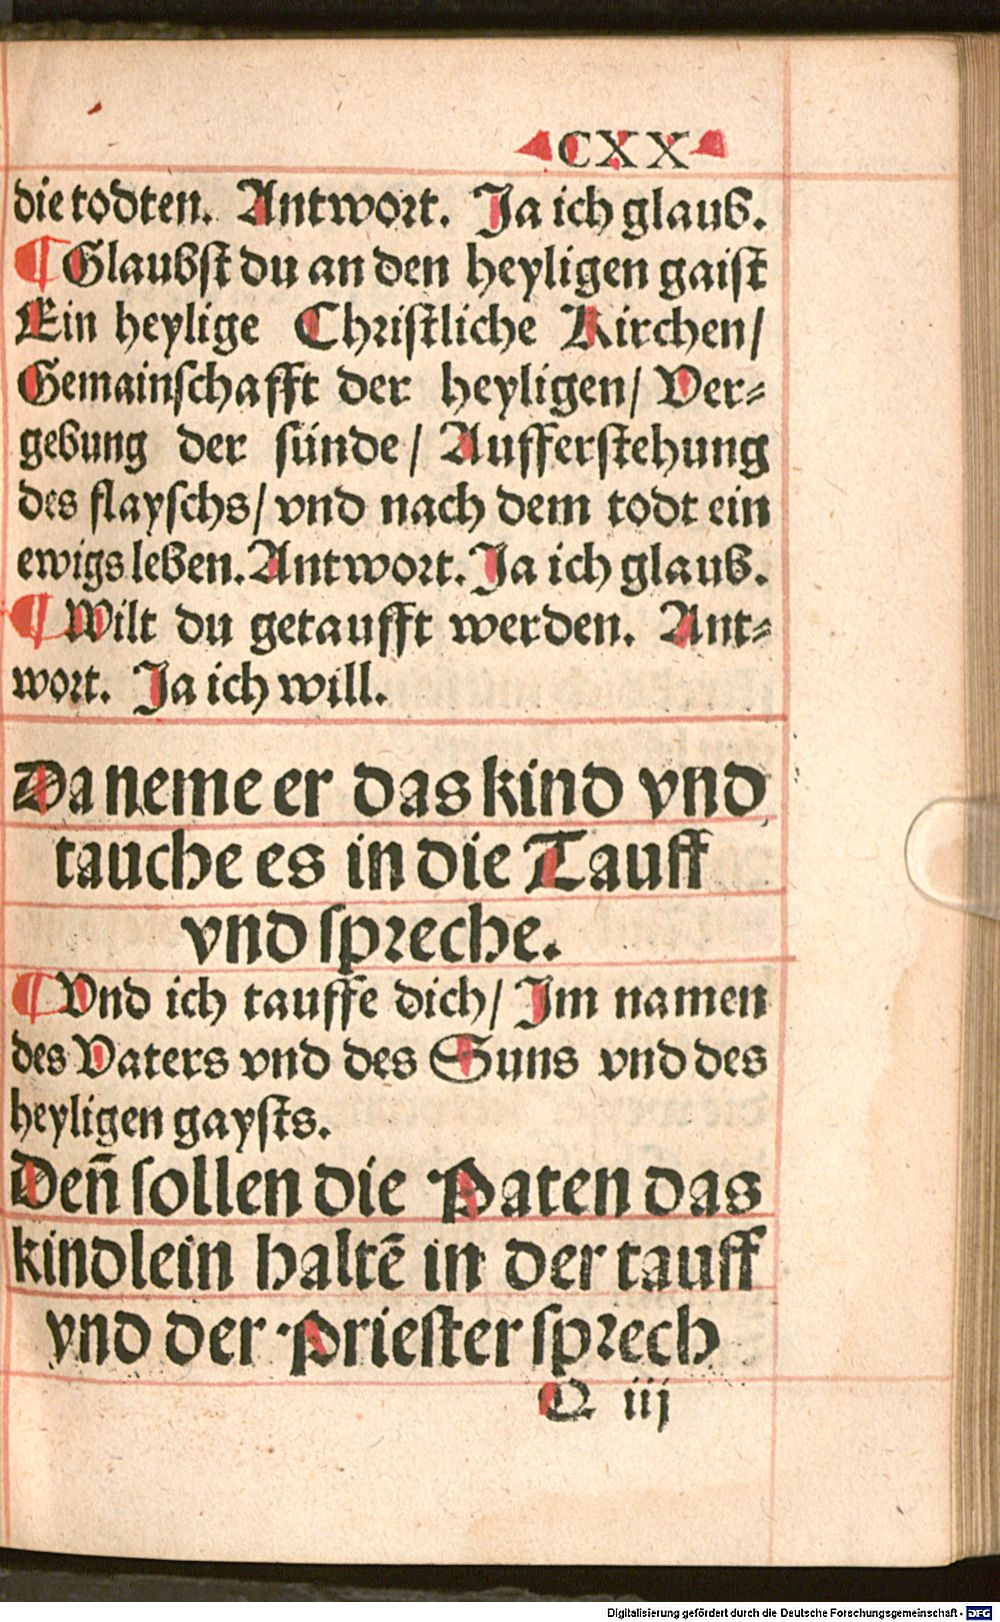 CXX
die todten. Antwort. Ja ich glaub.
¶ Glaubst du an den heyligen gaist
Ein heylige Christliche Kirchen/
Gemainschafft der heyligen/ Ver-
gebung der sünde/ Aufferstehung
des flayschs/ vnd nach dem todt ein
ewigs leben. Antwort. Ja ich glaub.
¶ Wilt du getaufft werden. Ant-
wort. Ja ich will.
Da neme er das kind vnd
tauche es in die Tauff
vnd spreche.
¶ Vnd ich tauffe dich/ Im namen
des Vaters vnd des Suns vnd des
heyligen gaysts.
Deñ sollen die Paten das
kindlein haltē in der tauff
vnd der Priester sprech
Q iij
Digitalisierung gefördert durch die Deutsche Forschungsgemeinschaft - DFG